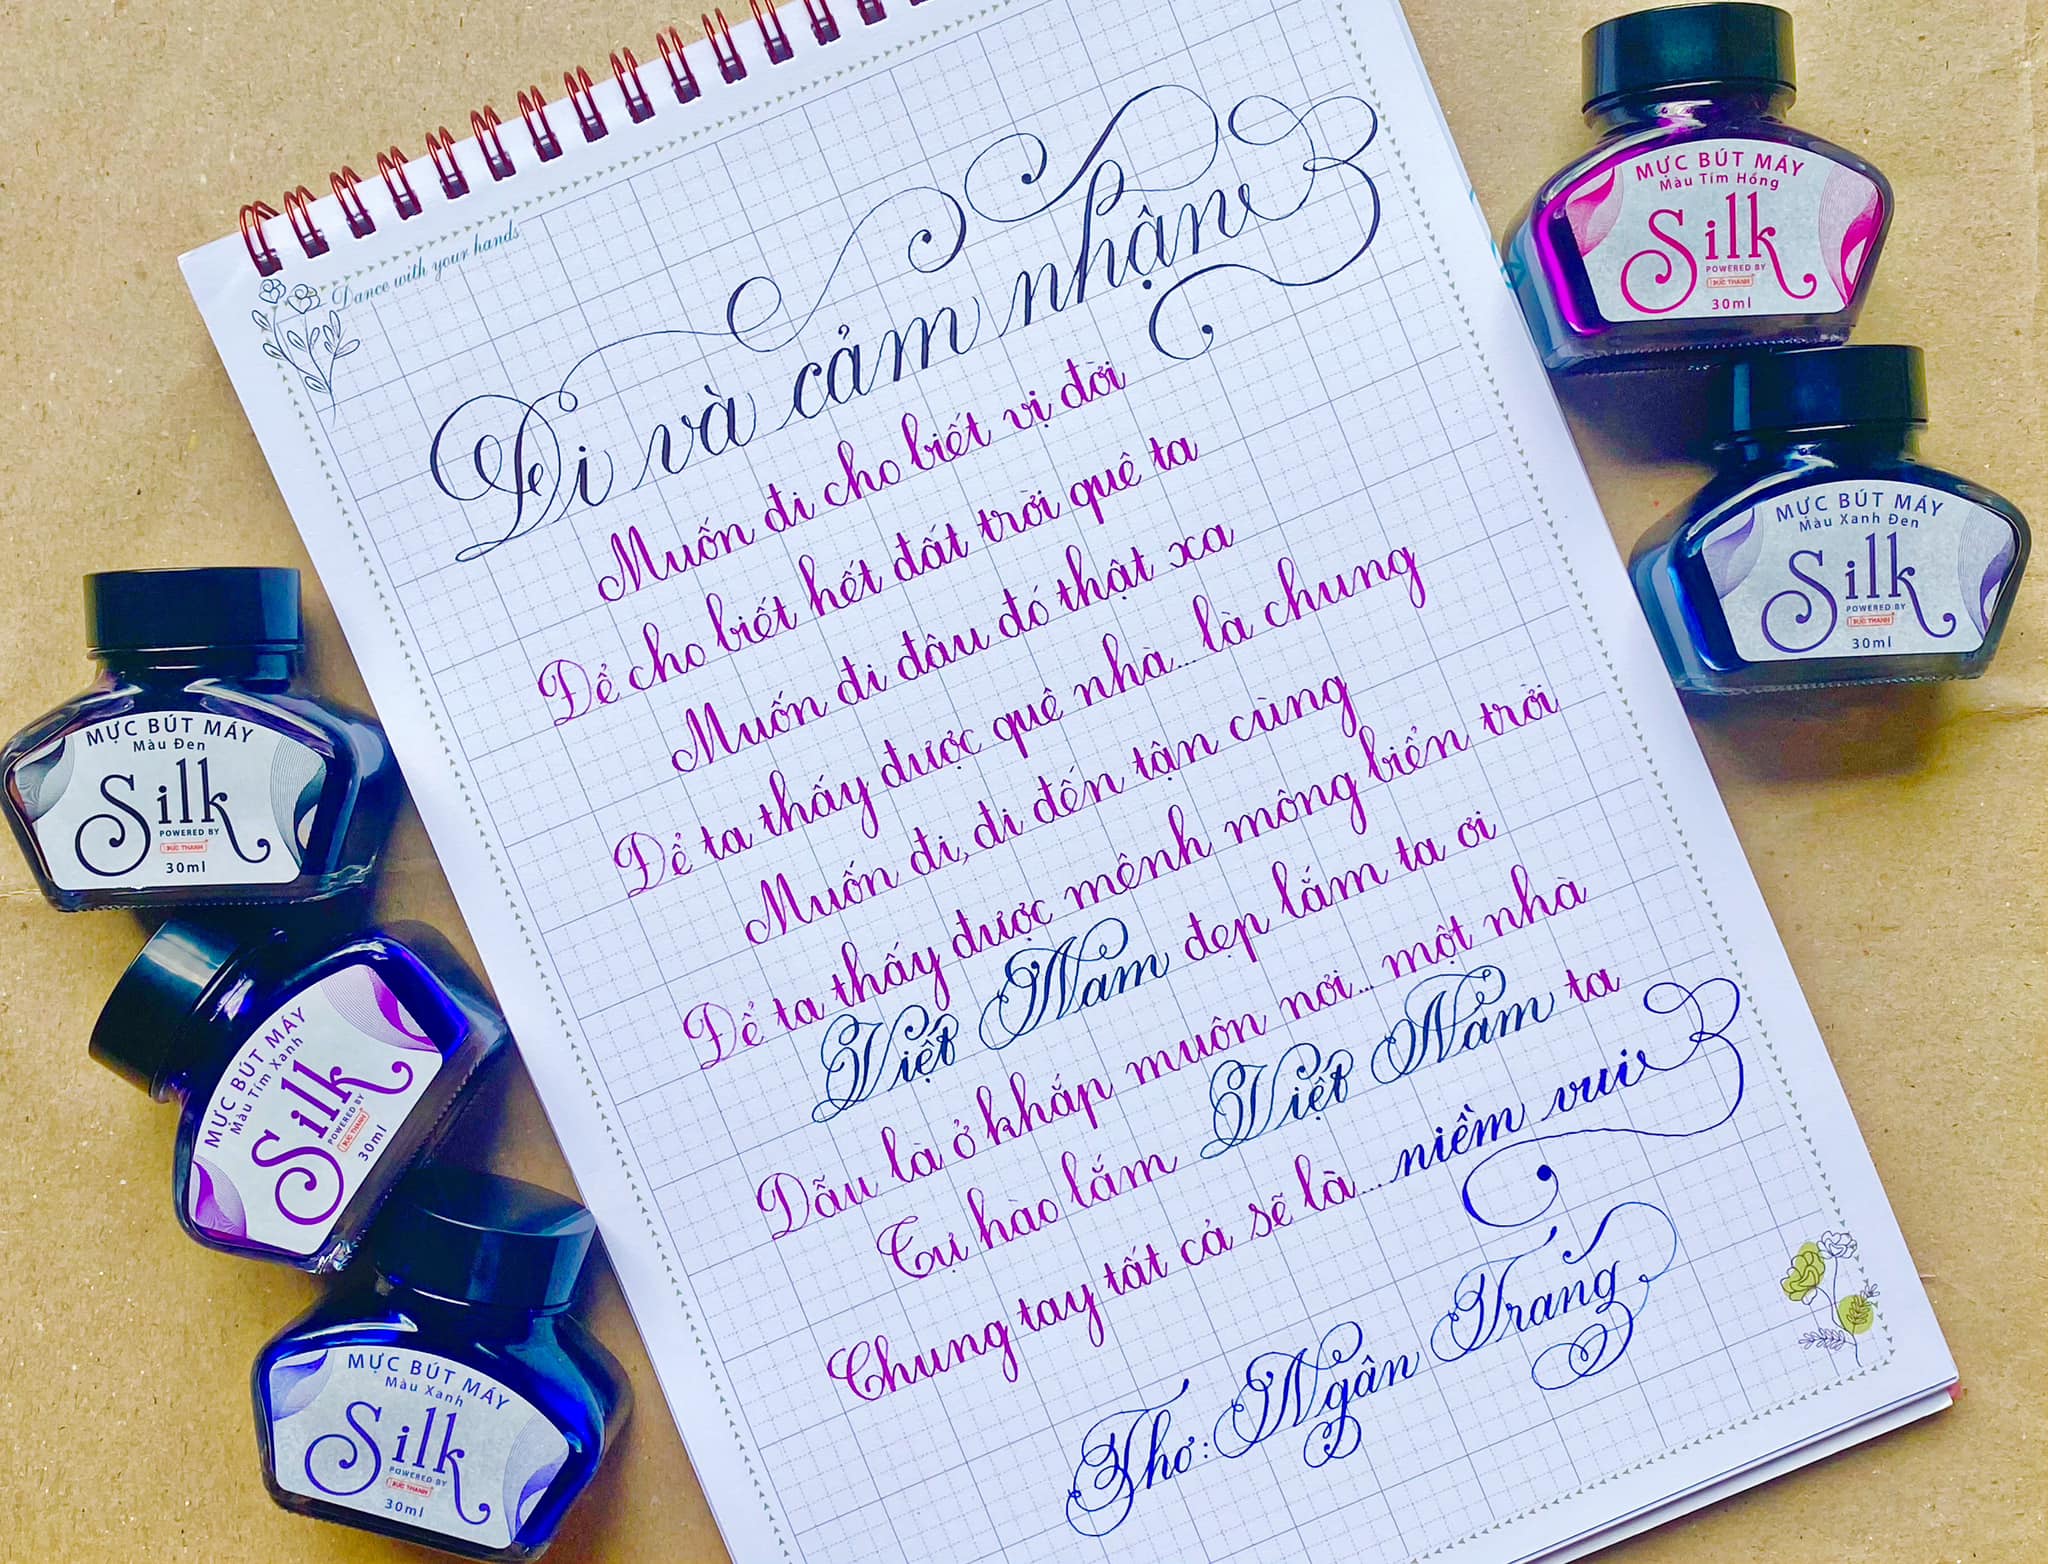 Dance with your hands
Đi và cảm nhận
Muốn đi cho biết vị đời
Để cho biết hết đất trời quê ta
Muốn đi đâu đó thật xa
Để ta thấy được quê nhà... là chung
Muốn đi, đi đến tận cùng
Để ta thấy được mênh mông biển trời
Việt Nam đẹp lắm ta ơi
Dẫu là ở khắp muôn nơi... một nhà
Tự hào lắm Việt Nam ta
Chung tay tất cả sẽ là... niềm vui
Thơ: Ngân Trang
MỰC BÚT MÁY
Màu Tím Hồng
Silk
POWERED BY
ĐỨC THÀNH
30ml
MỰC BÚT MÁY
Màu Xanh Đen
Silk
POWERED BY
ĐỨC THÀNH
30ml
MỰC BÚT MÁY
Màu Đen
Silk
POWERED BY
ĐỨC THÀNH
30ml
MỰC BÚT MÁY
Màu Tím Xanh
Silk
POWERED BY
ĐỨC THÀNH
30ml
MỰC BÚT MÁY
Màu Xanh
Silk
POWERED BY
ĐỨC THÀNH
30ml